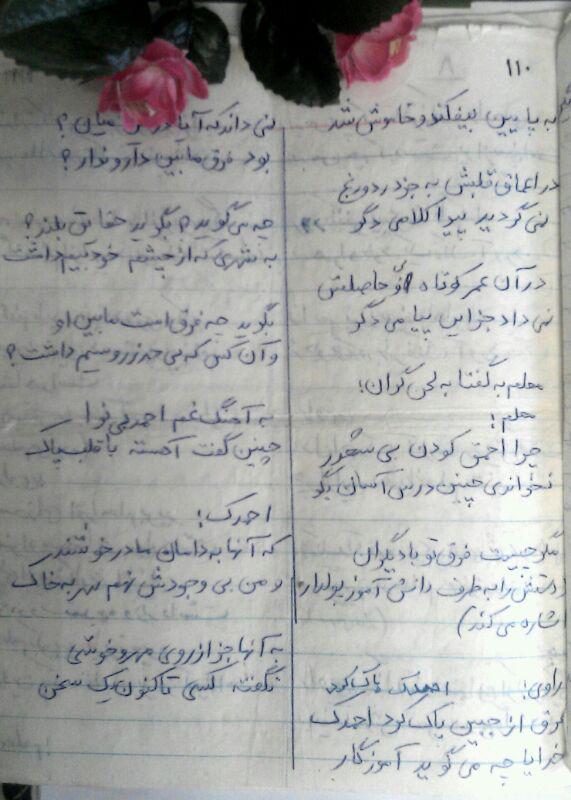 ۱۱۰
به پایین بیفکند و خاموش شد
در اعماق قلبش به جز درد و رنج
نمی گردید پیدا کلامی دگر
در آن عمر کوتاه او حاصلش
نمی داد جز این پیامی دگر
معلم به گفتا به لحن گران؛
معلم؛
چرا احمق کودن بی شعور
نخواندی چنین درس آسان بگو
مگر چیست فرق تو با دیگران
(دستش را به طرف دانش آموز پولدار
اشاره می کند)
راوی؛ احمدک پاک کرد
عرق از جبین پاک کرد احمدک
خدایا چه می گوید آموزگار
نمی داند که آنا در میان؟
بود فرق مابین دارو ندار؟
چه می گوید؟ بگوید حقایق بلند؟
به شهری که از چشم خود بیم داشت
بگوید چه فرق است مابین او
و آن کس که بی حد زر و سیم داشت؟
به آهنگ غم احمد بی نوا
چنین گفت آهسته با قلب پاک
احمدک؛
که آنها به دامان مادر خوشند
و من بی وجودش نهم سر به خاک
به آنها جز از روی مهر و خوشی
نگفته کسی تاکنون یک سخن